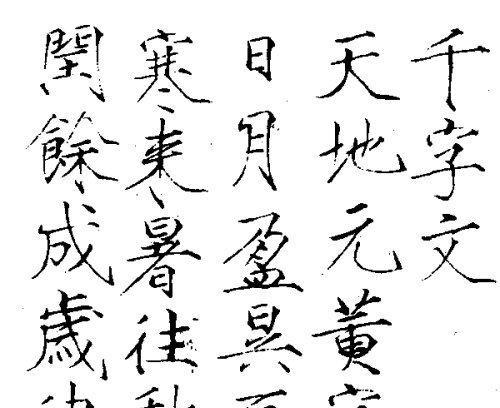 千字文
天地元黃
日月盈昃
寒来暑往
閏餘成歳